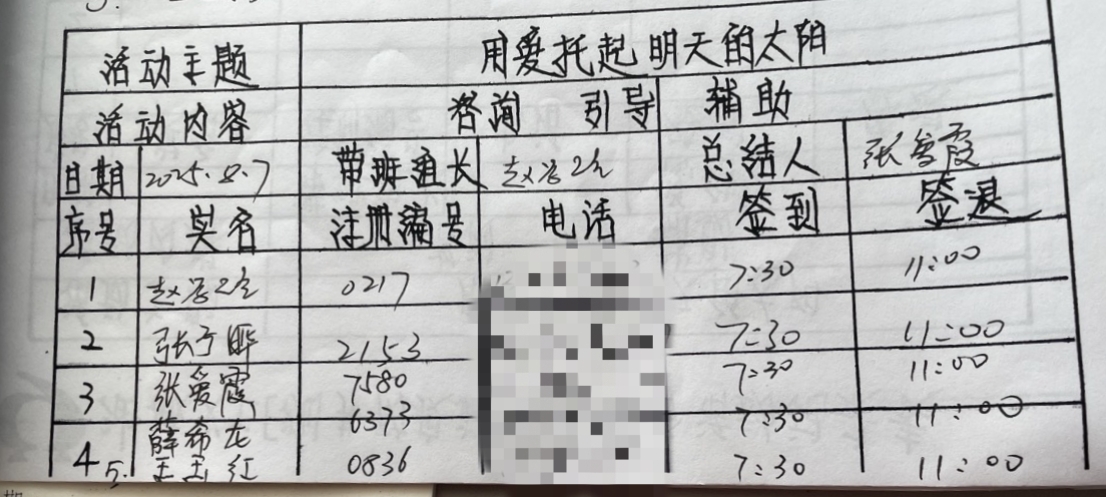 活动主题 用爱托起明天的太阳
活动内容 咨询 引导 辅助
日期 2025.8.7 带班组长 总结人 张爱霞
序号 实名 注册编号 电话 签到 签退
1 0217 7:30 11:00
2 张子晔 2153 7:30 11:00
3 张爱霞 7580 7:30 11:00
4 薛希龙 6373 7:30 11:00
5. 王玉红 0836 7:30 11:00